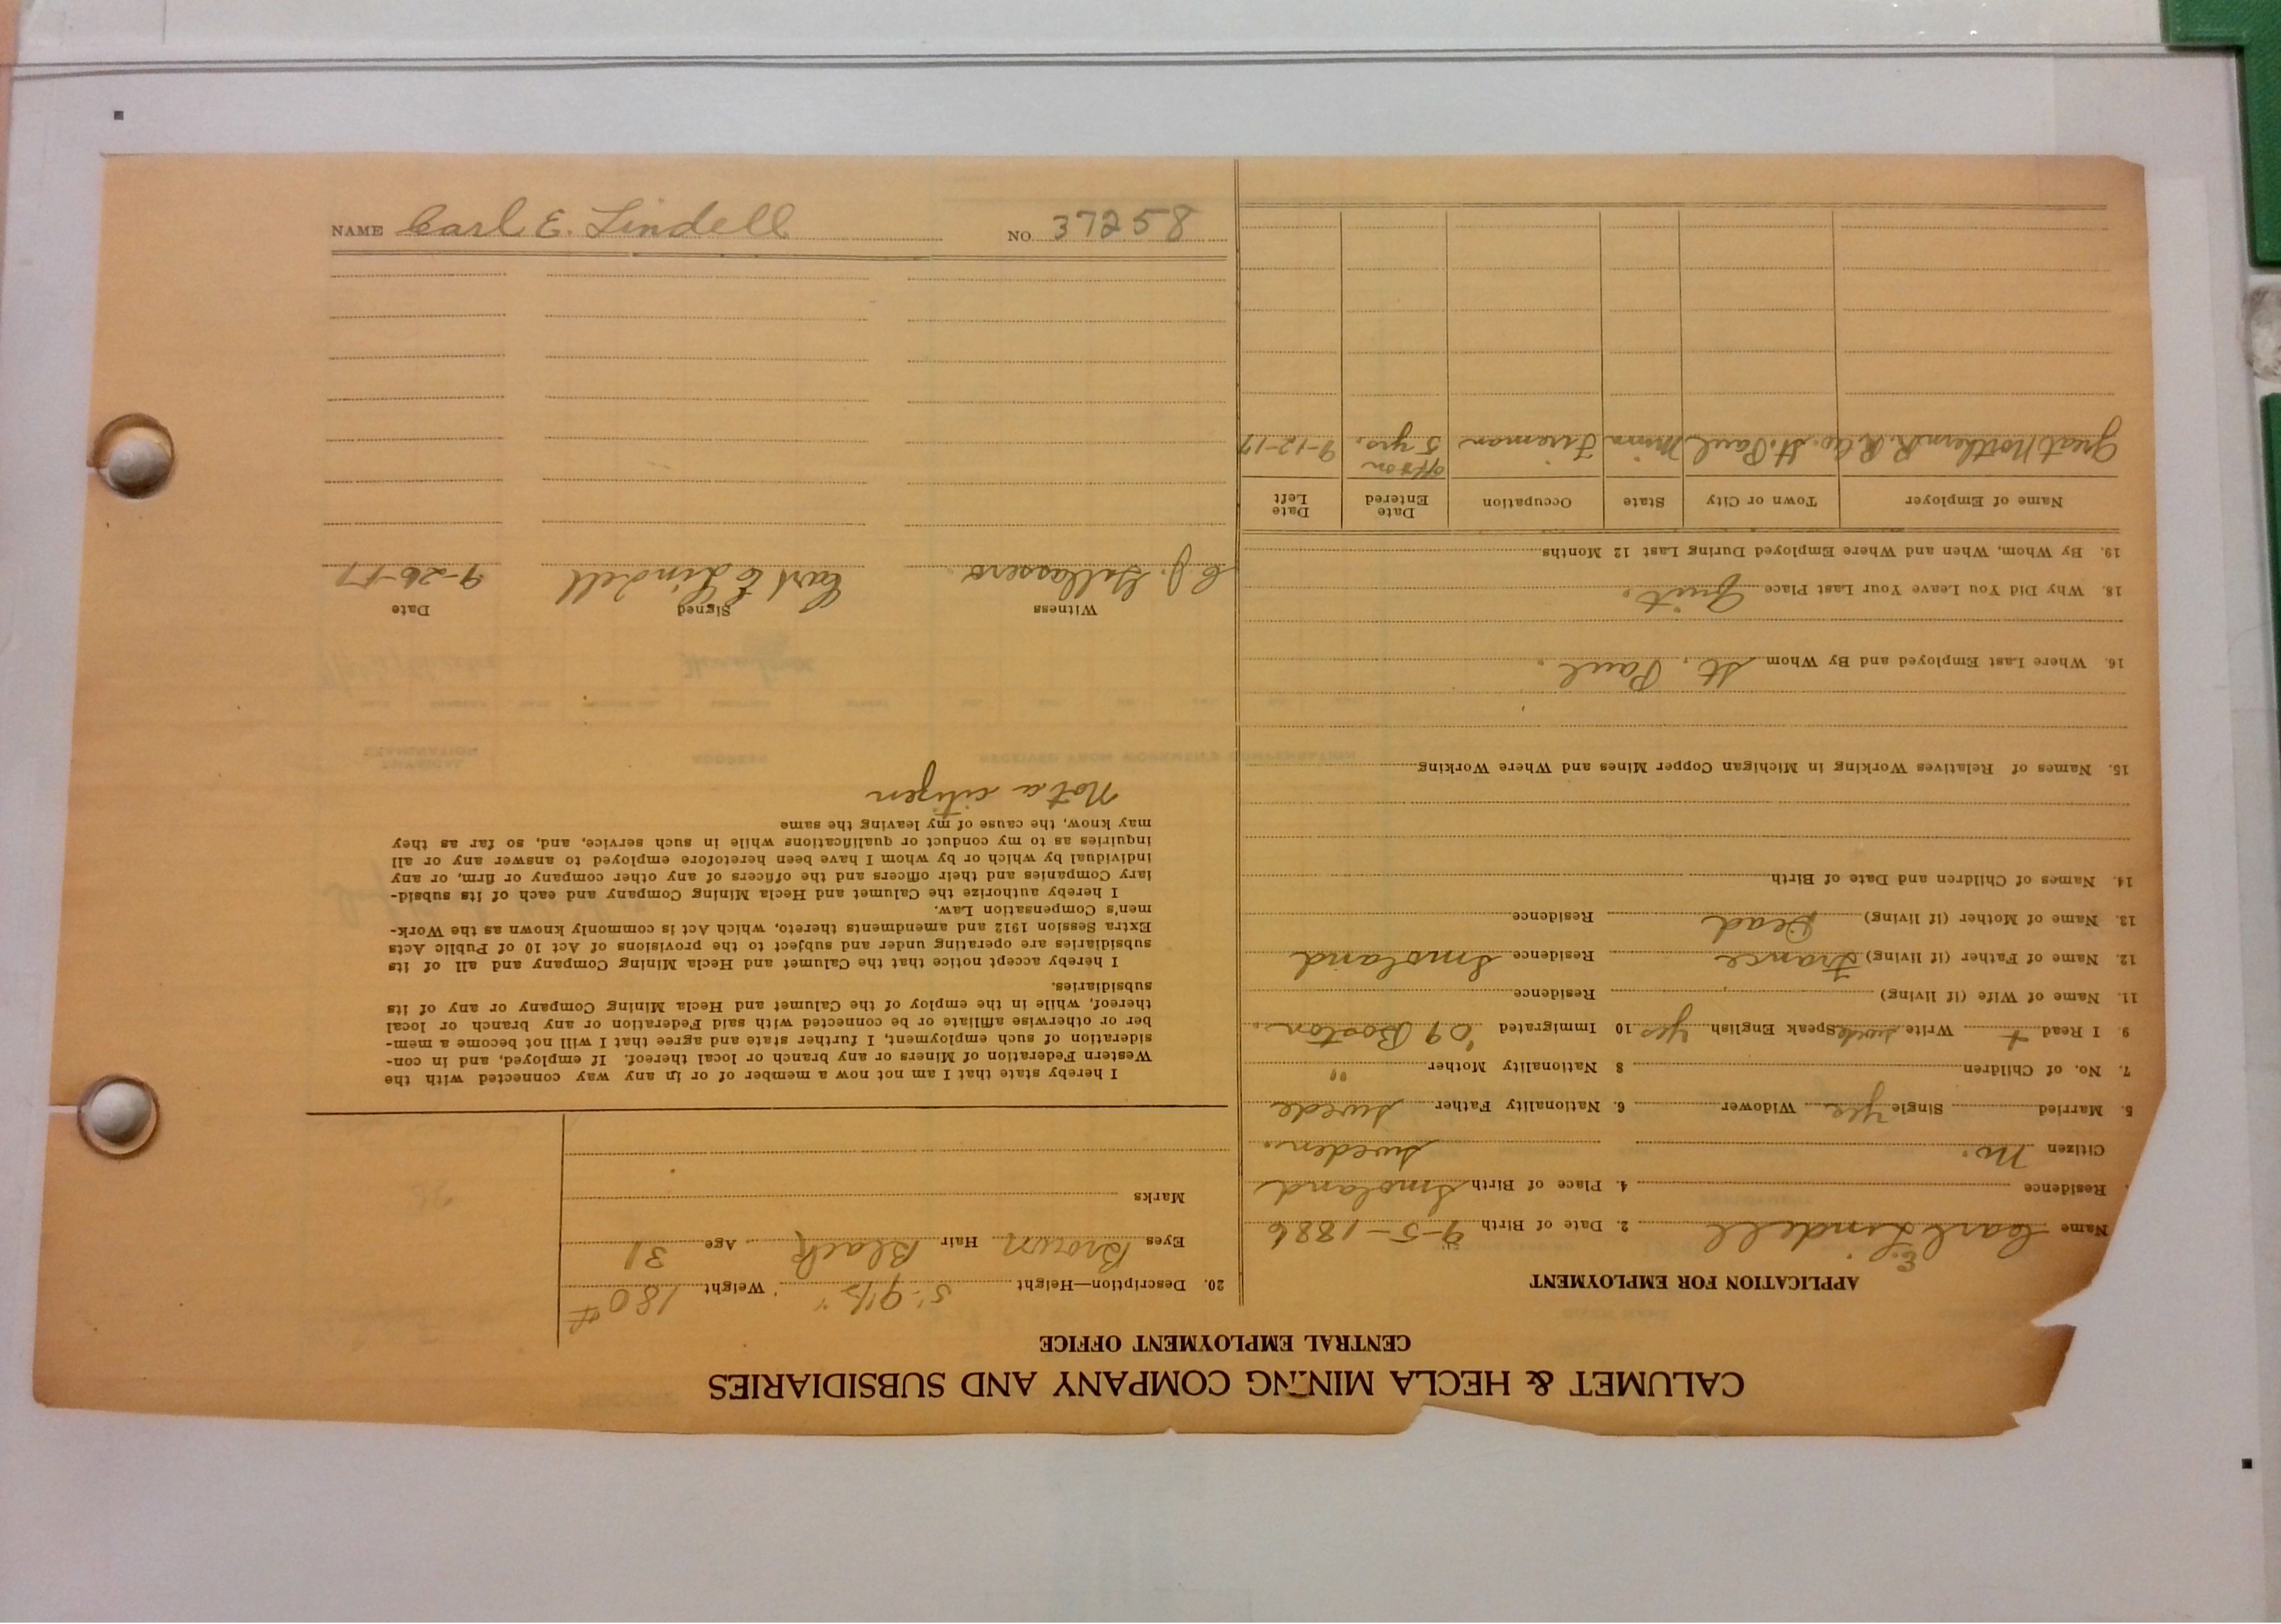 CALUMET & HECLA MINING COMPANY AND SUBSIDIARIES
CENTRAL EMPLOYMENT OFFICE
APPLICATION FOR EMPLOYMENT
Name Carl E. Lindell 2. Date of Birth 9-5-1886
Residence 4. Place of Birth Smoland
Citizen No. Sweden.
5. Married Single Yes Widower 6. Nationality Father Swede
7. No. of Children 8 Nationality Mother "
9. I Read + Write Swede Speak English Yes 10 Immigrated '09 Boston.
11. Name of Wife (if living) Residence
12. Name of Father (if living) France Residence Smoland
13. Name of Mother (if living) Dead Residence
14. Names of Children and Date of Birth
15. Names of Relatives Working in Michigan Copper Mines and Where Working
16. Where Last Employed and By Whom St. Paul.
18. Why Did You Leave Your Last Place Quit.
19. By Whom, When and Where Employed During Last 12 Months
Name of Employer Town or City State Occupation Date Entered Date Left
Great Northern R.R. Co. St. Paul Minn Fireman off & on 5 yrs. 9-12-17
20. Description—Height 5' 9½" Weight 180#
Eyes Brown Hair Black Age 31
Marks
I hereby state that I am not now a member of or in any way connected with the
Western Federation of Miners or any branch or local thereof. If employed, and in con-
sideration of such employment, I further state and agree that I will not become a mem-
ber or otherwise affiliate or be connected with said Federation or any branch or local
thereof, while in the employ of the Calumet and Hecla Mining Company or any of its
subsidiaries.
I hereby accept notice that the Calumet and Hecla Mining Company and all of its
subsidiaries are operating under and subject to the provisions of Act 10 of Public Acts
Extra Session 1912 and amendments thereto, which Act is commonly known as the Work-
men's Compensation Law.
I hereby authorize the Calumet and Hecla Mining Company and each of its subsid-
iary Companies and their officers and the officers of any other company or firm, or any
individual by which or by whom I have been heretofore employed to answer any or all
inquiries as to my conduct or qualifications while in such service, and, so far as they
may know, the cause of my leaving the same
Not a citizen
Witness Signed Date
C. J. Carl E Lindell 9-26-17
NAME Carl E. Lindell NO. 37258